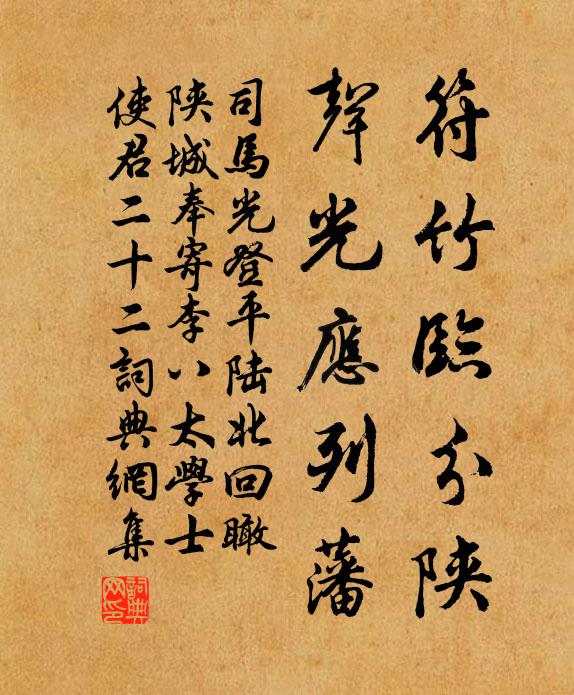 符竹臨分陝
聲光應列藩
司馬光登平陆北回瞰
陝城奉寄李八太學士
使君二十二詞典網集
詞典网印